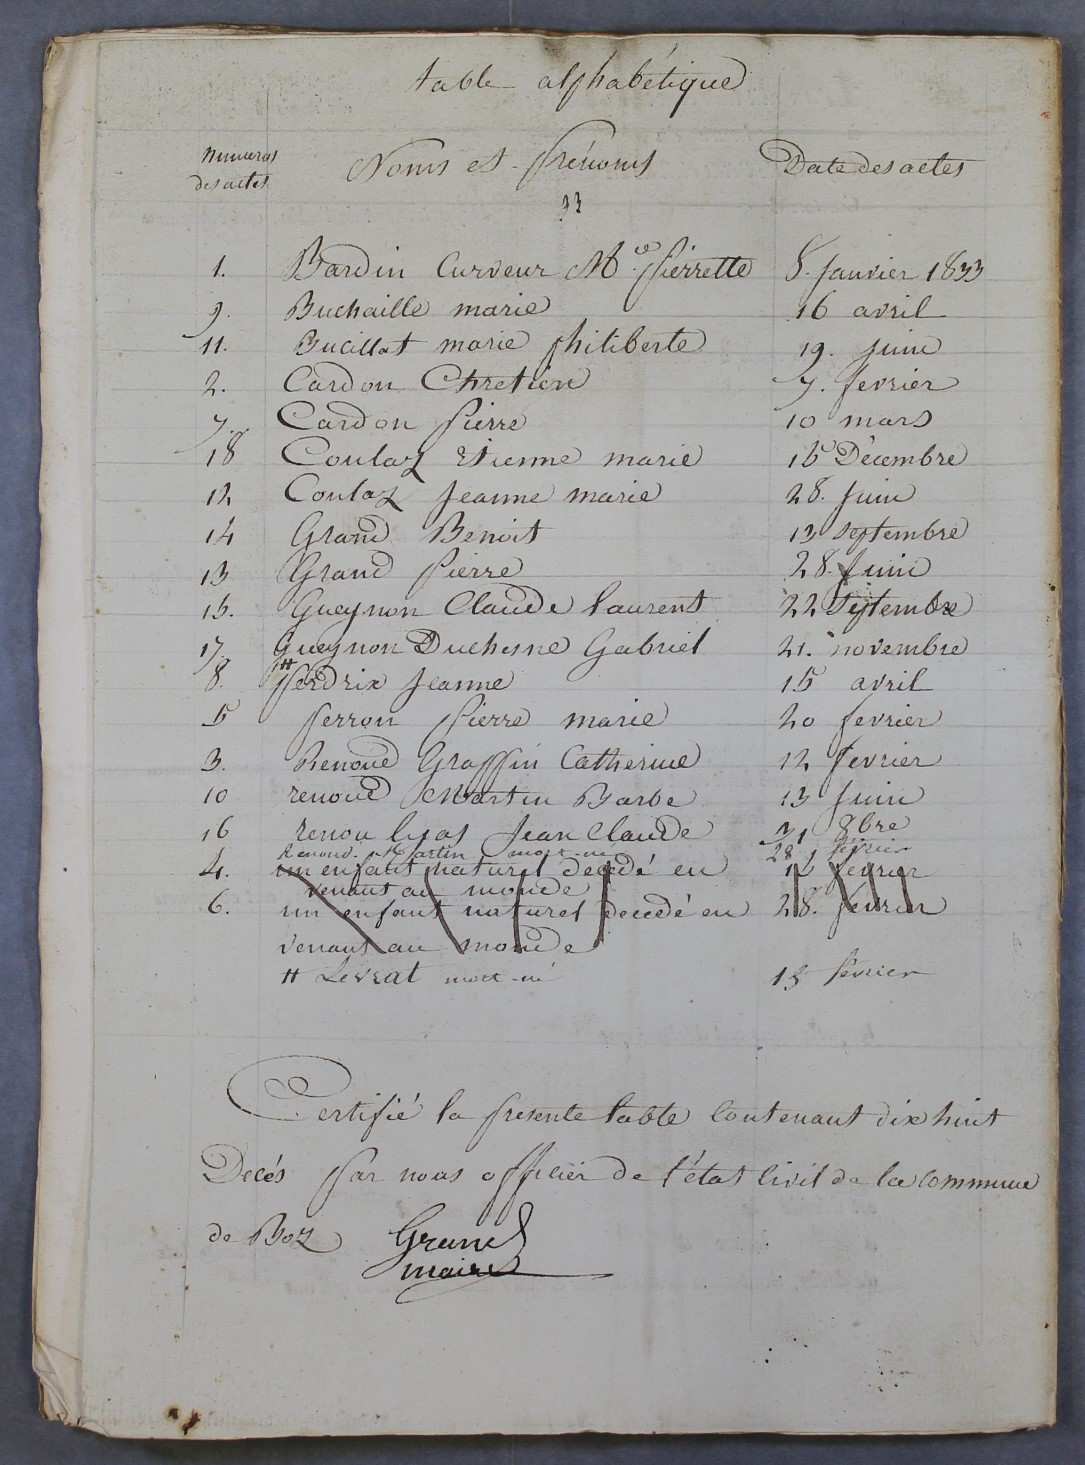 table alphabétique
Numeros des actes Noms et Prénoms Date des actes
33
1. Bardin Curveur M.ie Pierrette 8. Janvier 1833
9. Buchaille marie 16 avril
11. Bucillat marie philiberte 19. juin
2. Cardon Chretien 7. fevrier
7. Cardon Pierre 10 mars
18 Coulaz Etienne marie 15 Décembre
12 Coulaz Jeanne marie 28. Juin
14 Grand Benoit 13 septembre
13 Grand Pierre 28. Juin
15. Gueynon Claude laurent 22 Septembre
17. Gueynon Duchesne Gabriel 21. novembre
#
8. Perdrix Jeanne 15 avril
5 perron Pierre marie 20 fevrier
3. Renoud Graffin Catherine 12 fevrier
10 renoud Martin Barbe 13 Juin
16 renou lyas Jean Claude 31 8bre
Renoud. Martin mort-né 28 février
4. un enfant naturel decedé en 12 fevrier
venant au monde
6. un enfant naturel decedé en 28. fevrier
venant au monde
# Levrat mort-né 15 février
Certifié la presente table Contenant dix huit
Decés Par nous officier de l'état Civil de la Commune
de Boz Grand
maire